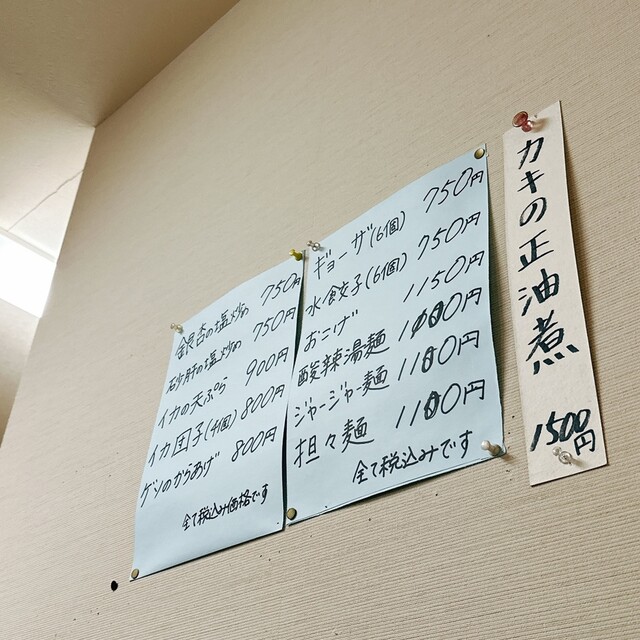 銀杏の塩炒め 750円
砂肝の塩炒め 750円
イカの天ぷら 900円
イカ団子(4個) 800円
ゲソのからあげ 800円
全て税込み価格です
ギョーザ(6個) 750円
水餃子(6個) 750円
おこげ 1150円
酸辣湯麺 1100円
ジャージャー麺 1100円
担々麺 1100円
全て税込みです
カキの正油煮 1500円